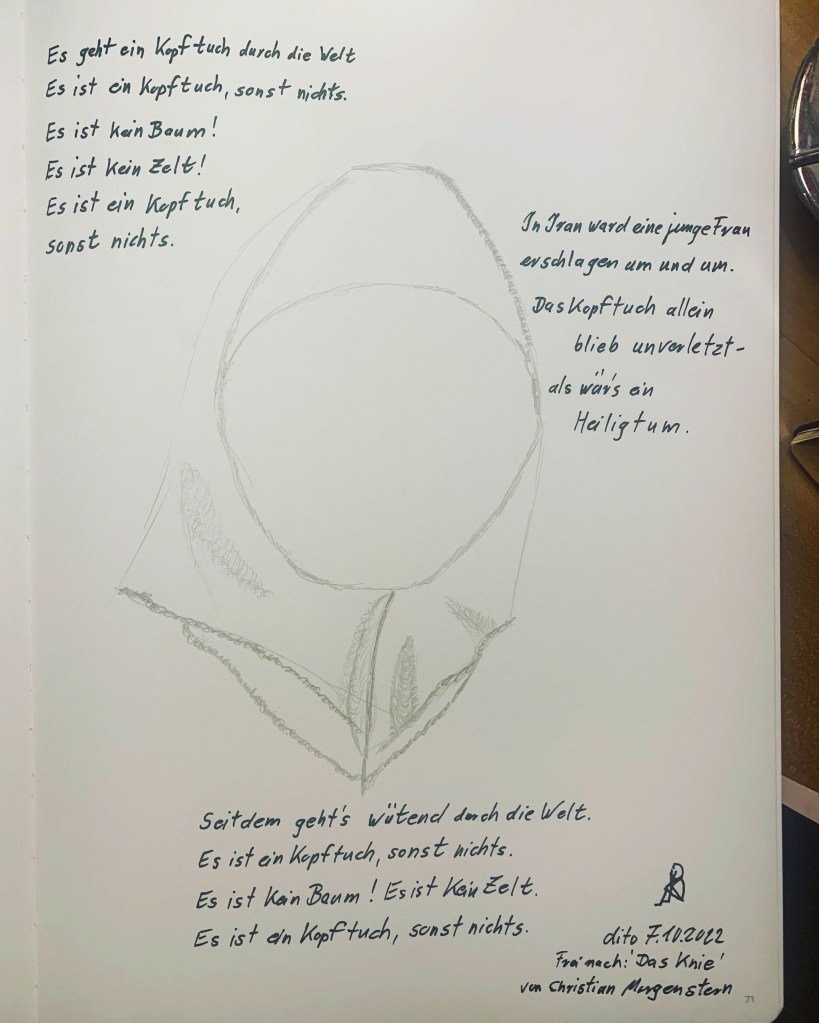 Es geht ein Kopftuch durch die Welt
Es ist ein Kopftuch, sonst nichts.
Es ist kein Baum!
Es ist kein Zelt!
Es ist ein Kopftuch,
sonst nichts.
In Iran ward eine junge Frau
erschlagen um und um.
Das Kopftuch allein
blieb unverletzt-
als wär's ein
Heiligtum.
Seitdem geht's wütend durch die Welt.
Es ist ein Kopftuch, sonst nichts.
Es ist kein Baum! Es ist kein Zelt.
Es ist ein Kopftuch, sonst nichts.
dito 7.10.2022
Frei nach: 'Das Knie'
von Christian Morgenstern
71